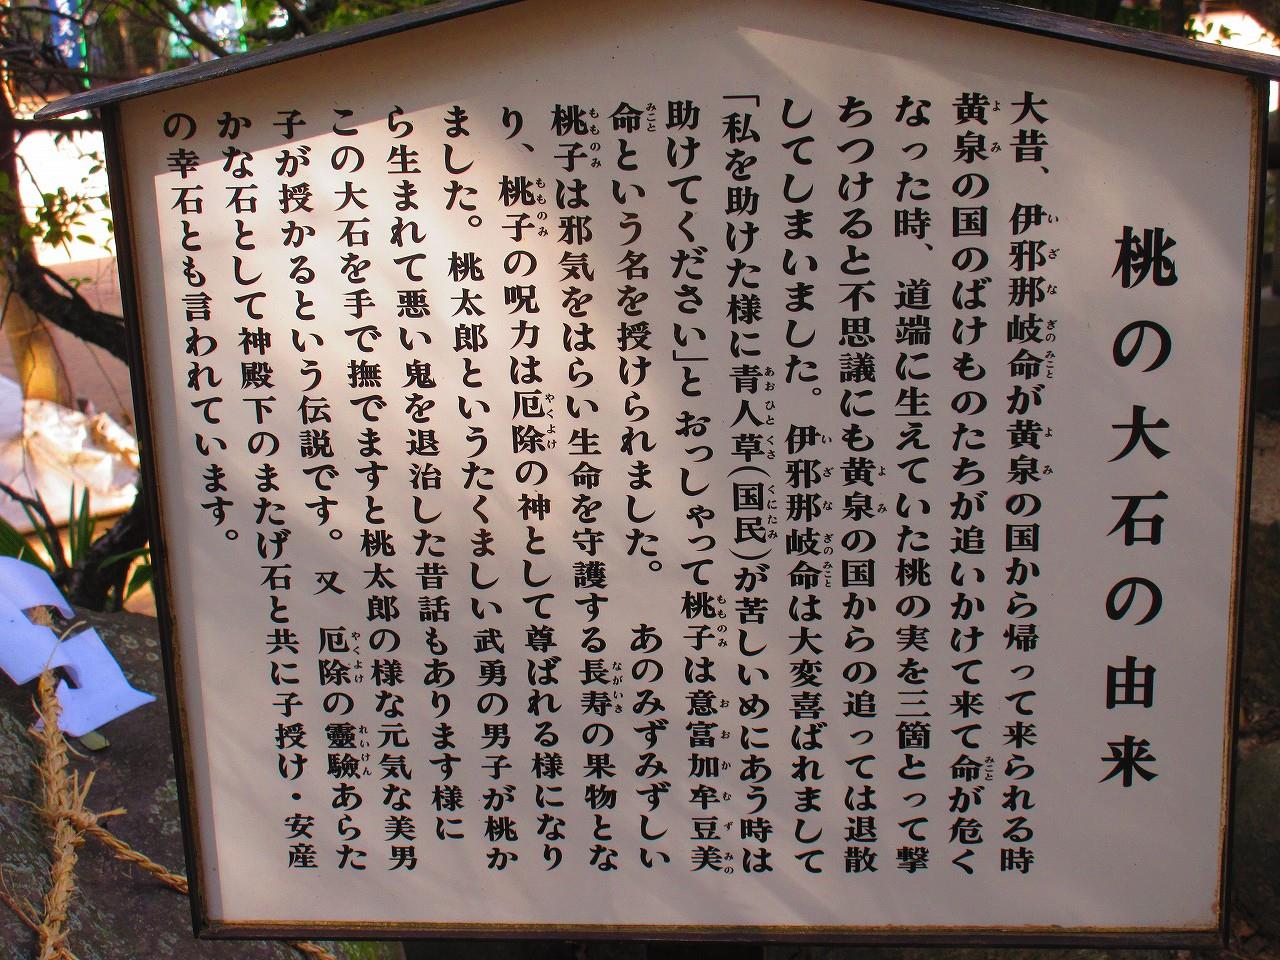 桃の大石の由来
大昔、伊邪那岐命が黄泉の国から帰って来られる時
黄泉の国のばけものたちが追いかけて来て命が危く
なった時、道端に生えていた桃の実を三箇とって撃
ちつけると不思議にも黄泉の国からの追っては退散
してしまいました。伊邪那岐命は大変喜ばれまして
「私を助けた様に青人草(国民)が苦しいめにあう時は
助けてください」とおっしゃって桃子は意富加牟豆美
命という名を授けられました。 あのみずみずしい
桃子は邪気をはらい生命を守護する長寿の果物とな
り、桃子の呪力は厄除の神として尊ばれる様になり
ました。桃太郎というたくましい武勇の男子が桃か
ら生まれて悪い鬼を退治した昔話もあります様に
この大石を手で撫でますと桃太郎の様な元気な美男
子が授かるという伝説です。又 厄除の靈驗あらた
かな石として神殿下のまたげ石と共に子授け・安産
の幸石とも言われています。